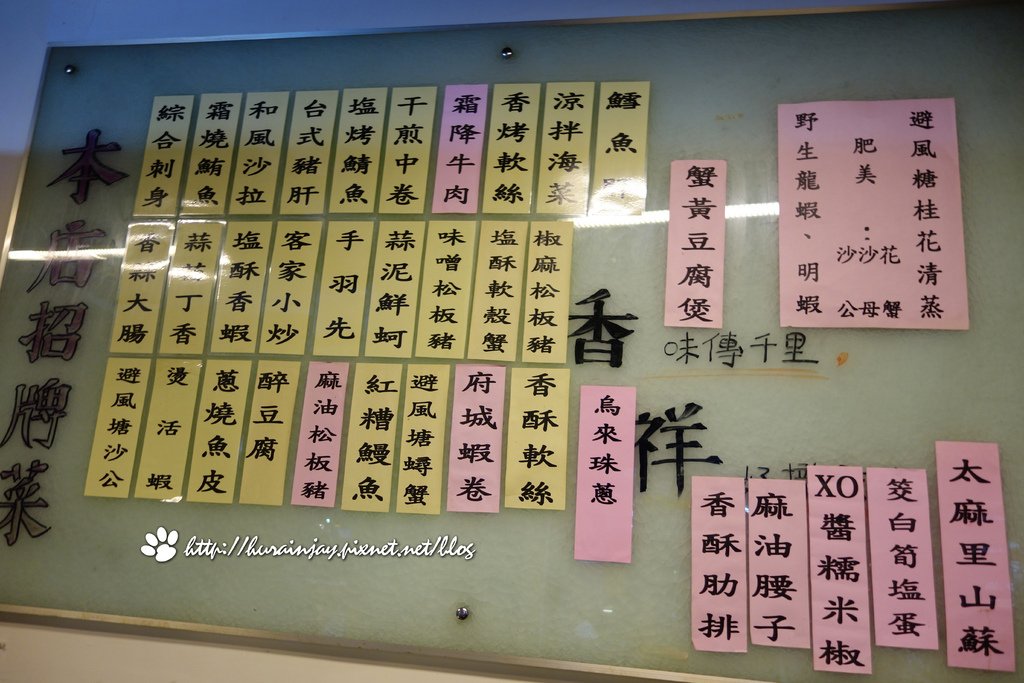 本店招牌菜
鱈魚
涼拌海菜
香烤軟絲
霜降牛肉
干煎中卷
塩烤鯖魚
台式豬肝
和風沙拉
霜燒鮪魚
綜合刺身
椒麻松板豬
塩酥軟殼蟹
味噌松板豬
蒜泥鮮蚵
手羽先
客家小炒
塩酥香蝦
丁香
香蒜大腸
香酥軟絲
府城蝦卷
避風塘蟳蟹
紅糟鰻魚
麻油松板豬
醉豆腐
蔥燒魚皮
燙活蝦
避風塘沙公
避風糖桂花清蒸
肥美：沙沙花
公母蟹
野生龍蝦、明蝦
蟹黃豆腐煲
香祥
味傳千里
烏來珠蔥
太麻里山蘇
筊白筍塩蛋
XO醬糯米椒
麻油腰子
香酥肋排
http://hurainjay.pixnet.net/blog